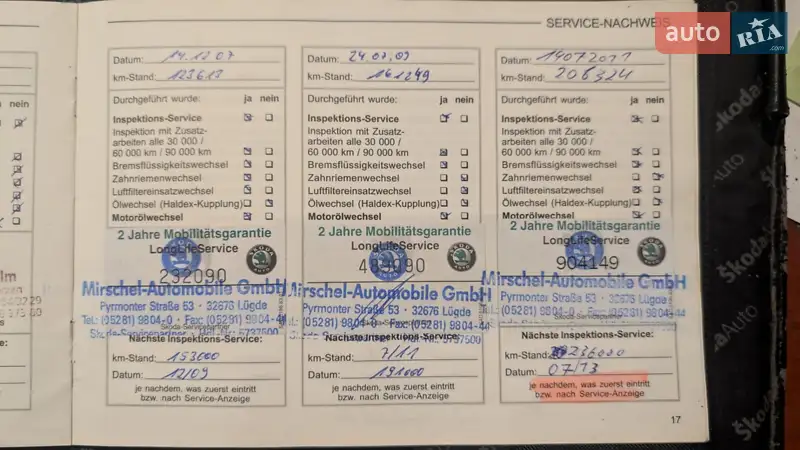 SERVICE-NACHWEIS
auto
RIA
.com
nein
Datum: 14.12.07
km-Stand: 123613
Durchgeführt wurde: ja nein
Inspektions-Service
Inspektion mit Zusatz-
arbeiten alle 30 000 /
60 000 km / 90 000 km
Bremsflüssigkeitswechsel
Zahnriemenwechsel
Luftfiltereinsatzwechsel
Ölwechsel (Haldex-Kupplung)
Motorölwechsel
2 Jahre Mobilitätsgarantie
LongLifeService
232090
Mirschel-Automobile GmbH
Pyrmonter Straße 53 · 32676 Lügde
Tel.: (05281) 9804-0 · Fax: (05281) 9804-44
Nächste Inspektions-Service:
km-Stand: 153000
Datum: 12/09
je nachdem, was zuerst eintritt
bzw. nach Service-Anzeige
Datum: 24.07.09
km-Stand: 161249
Durchgeführt wurde: ja nein
Inspektions-Service
Inspektion mit Zusatz-
arbeiten alle 30 000 /
60 000 km / 90 000 km
Bremsflüssigkeitswechsel
Zahnriemenwechsel
Luftfiltereinsatzwechsel
Ölwechsel (Haldex-Kupplung)
Motorölwechsel
2 Jahre Mobilitätsgarantie
LongLifeService
Mirschel-Automobile GmbH
Pyrmonter Straße 53 · 32676 Lügde
(05281) 9804-0 · Fax: (05281) 9804-44
Nächste Inspektions-Service:
km-Stand: 7/11
Datum: 191000
je nachdem, was zuerst eintritt
bzw. nach Service-Anzeige
Datum: 14072011
km-Stand: 206324
Durchgeführt wurde: ja nein
Inspektions-Service
Inspektion mit Zusatz-
arbeiten alle 30 000 /
60 000 km / 90 000 km
Bremsflüssigkeitswechsel
Zahnriemenwechsel
Luftfiltereinsatzwechsel
Ölwechsel (Haldex-Kupplung)
Motorölwechsel
2 Jahre Mobilitätsgarantie
LongLifeService
904149
Mirschel-Automobile GmbH
Pyrmonter Straße 53 · 32676 Lügde
Tel.: (05281) 9804-0 · Fax: (05281) 9804-44
Nächste Inspektions-Service:
km-Stand: 236000
Datum: 07/13
je nachdem, was zuerst eintritt
bzw. nach Service-Anzeige
17